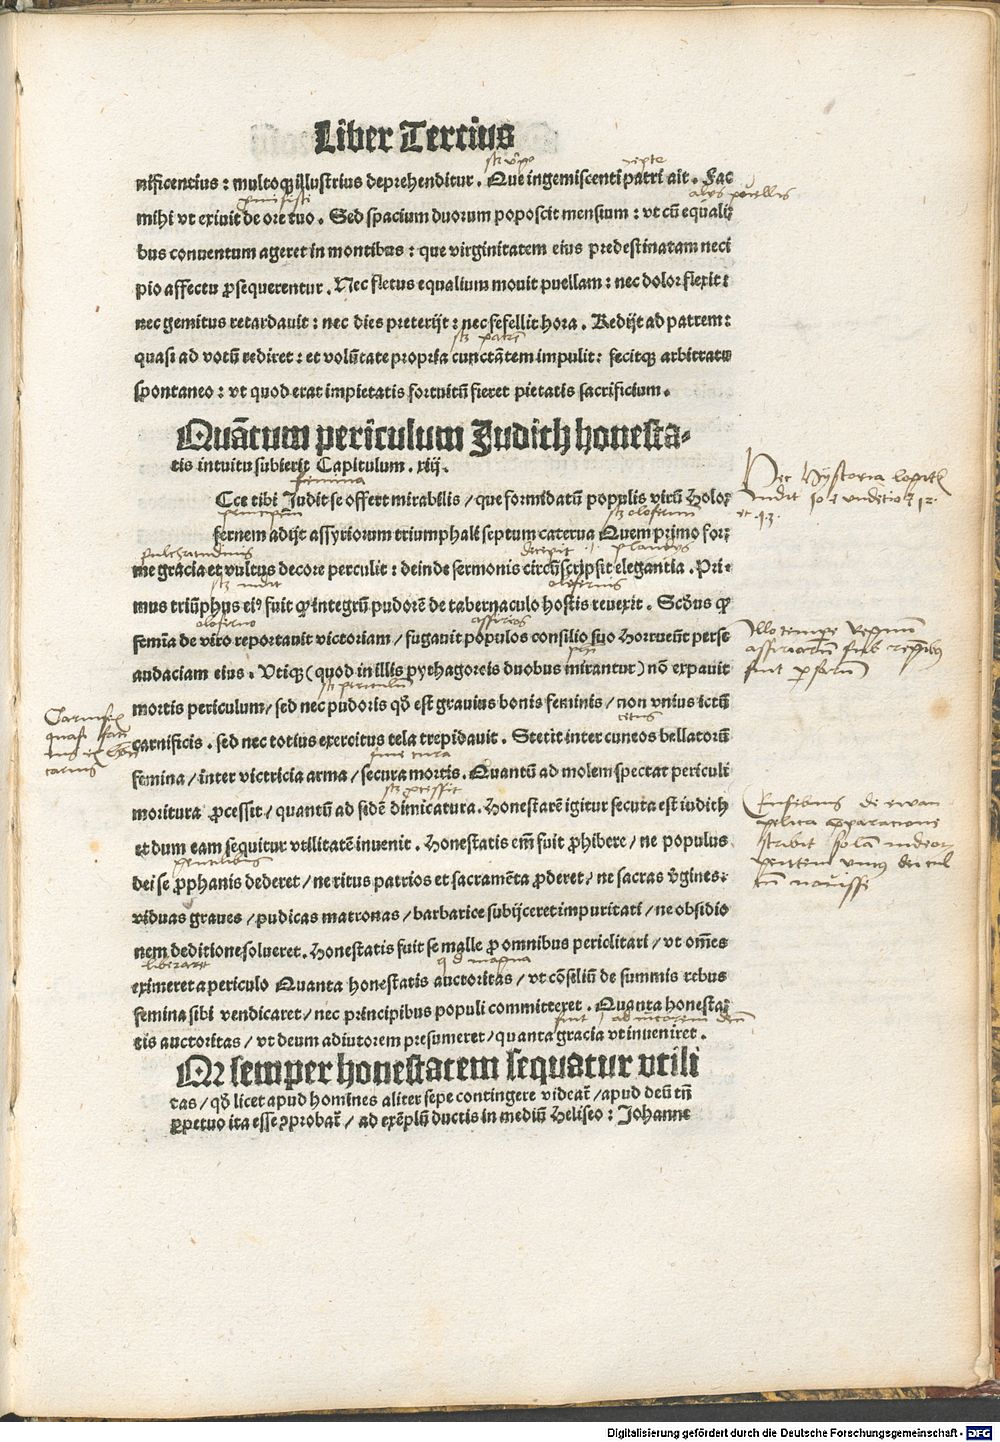 Liber Tercius
nificentius : multoqꝫ illustrius deprehenditur . Que ingemiscenti patri ait . Fac
mihi vt exiuit de ore tuo . Sed spacium duorum poposcit mensium : vt cū equali⸗
bus conuentum ageret in montibus : que virginitatem eius predestinatam neci
pio affectu ꝓsequerentur . Nec fletus equalium mouit puellam : nec dolor flexit :
nec gemitus retardauit : nec dies preterijt : nec fefellit hora . Redijt ad patrem :
quasi ad votū rediret : et volūtate propria cunctātem impulit : fecitqꝫ arbitratu
spontaneo : vt quod erat impietatis fortuitū fieret pietatis sacrificium .
Quātum periculum Judith honesta⸗
tis intuitu subierit Capitulum . xiij .
femina
Cce tibi Judit se offert mirabilis / que formidatū populis virū Holof⸗
principem
fernem adijt assyriorum triumphali septum caterua Quem primo for⸗
pulchritudinis
me gracia et vultus decore perculit : deinde sermonis circūscripsit elegantia . Pri⸗
mus triūphus eiꝰ fuit ꝙ integrū pudorē de tabernaculo hostis reuexit . Scd̄us ꝙ
oloferno
femīa de viro reportauit victoriam / fugauit populos consilio suo Horruerūt perse
audaciam eius . Vtiqꝫ ( quod in illis pythagoreis duobus mirantur ) nō expauit
mortis periculum / sed nec pudoris qd̄ est grauius bonis feminis / non vnius ictū
carnificis . sed nec totius exercitus tela trepidauit . Stetit inter cuneos bellatorū
sine cura
femina / inter victricia arma / secura mortis . Quantū ad molem spectat periculi
moritura ꝓcessit / quantū ad fidē dimicatura . Honestatē igitur secuta est iudich
et dum eam sequitur vtilitatē inuenit . Honestatis em̄ fuit ꝓhibere / ne populus
gentilibus
dei se ꝓphanis dederet / ne ritus patrios et sacramēta ꝓderet / ne sacras v̄gines :
viduas graues / pudicas matronas / barbarice subijceret impuritati / ne obsidio
nem deditione solueret . Honestatis fuit se malle ꝓ omnibus periclitari / vt om̄es
liberaret
eximeret a periculo Quanta honestatis auctoritas / vt cōsiliū de summis rebus
femina sibi vendicaret / nec principibus populi committeret . Quanta honesta⸗
tis auctoritas / vt deum adiutorem presumeret / quanta gracia vt inueniret .
Qꝛ semper honestatem sequatur vtili
tas / qd̄ licet apud homines aliter sepe contingere videat̄ / apud deū tn̄
ꝑpetuo ita esse ꝓbat̄ / ad exēplū ductis in mediū Heliseo : Johanne
Digitalisierung gefördert durch die Deutsche Forschungsgemeinschaft - DFG